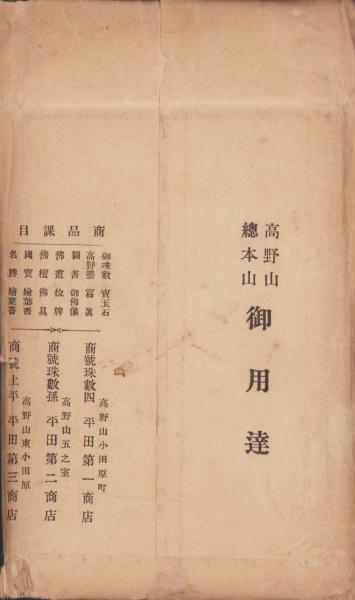 高野山
總本山
御用達
商品課目
御珠數 寳玉石
高野墨 寫眞
圖書 御佛像
佛畫 位牌
佛檀 佛具
國寳 繪葉書
名勝 繪葉書
高野山小田原町
商號珠數四 平田第一商店
高野山五之室
商號珠數孫 平田第二商店
高野山東小田原
商號土平 平田第三商店